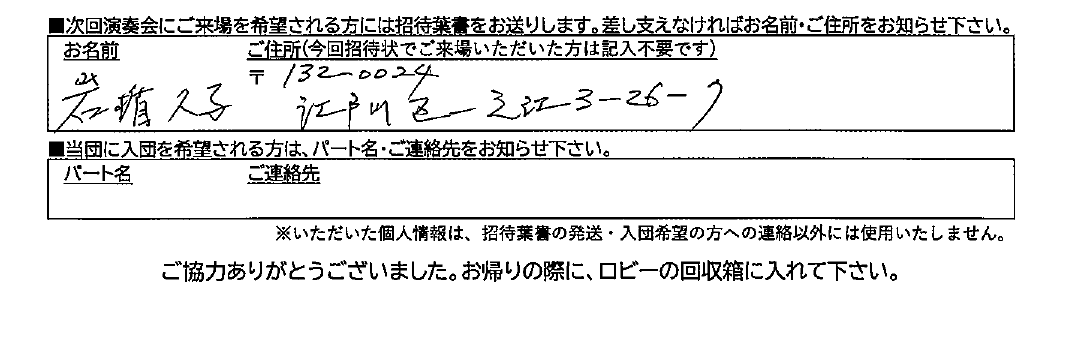 ■次回演奏会にご来場を希望される方には招待葉書をお送りします。差し支えなければお名前・ご住所をお知らせ下さい。
お名前 ご住所(今回招待状でご来場いただいた方は記入不要です)
〒 132-0024
岩楯 久子 江戸川区一之江3-26-7
■当団に入団を希望される方は、パート名・ご連絡先をお知らせ下さい。
パート名 ご連絡先
※いただいた個人情報は、招待葉書の発送・入団希望の方への連絡以外には使用いたしません。
ご協力ありがとうございました。お帰りの際に、ロビーの回収箱に入れて下さい。